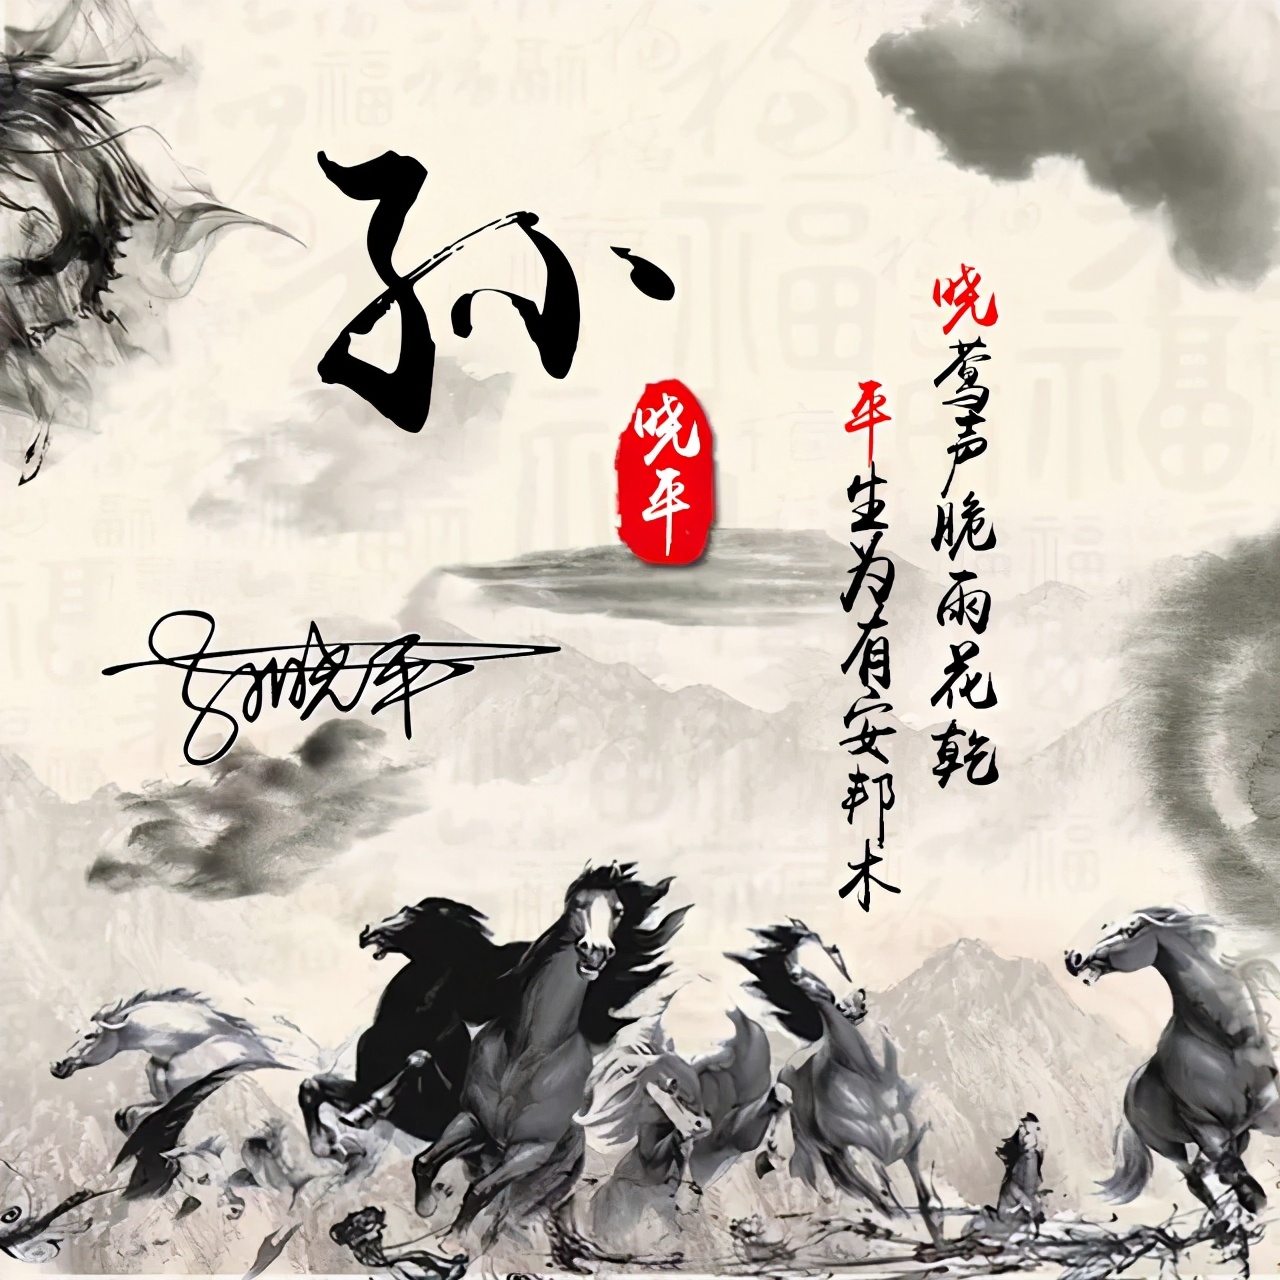 孙
晓平
孙晓平
晓莺声脆雨花乾
平生为有安邦木
福